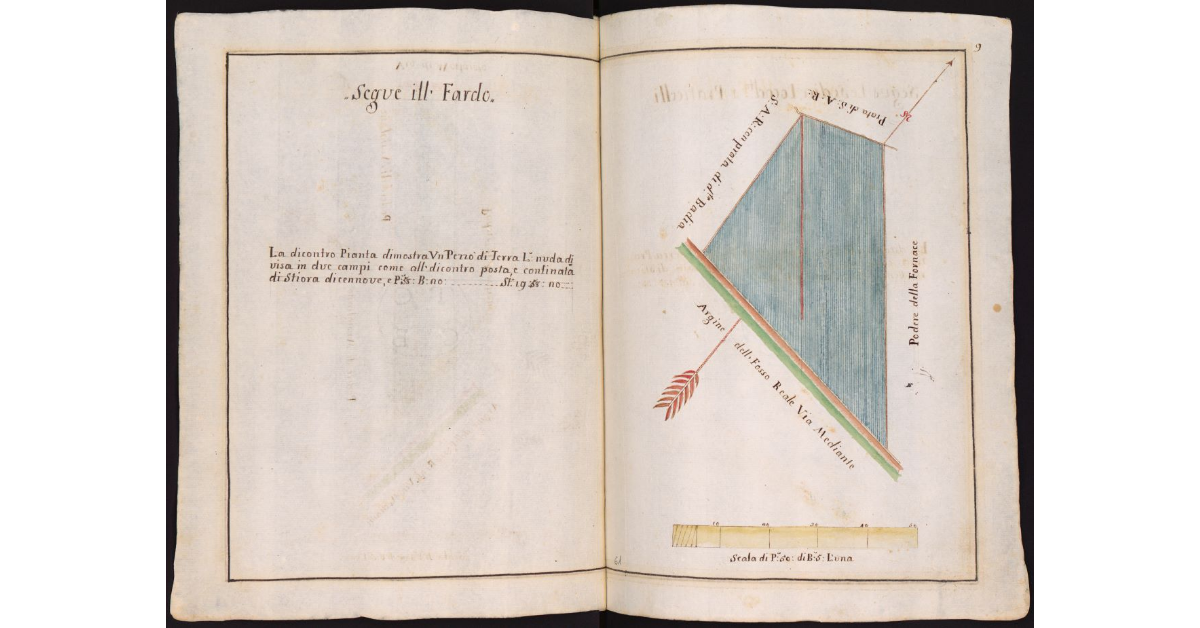 Segue ill. Fardo.
La dicontro Pianta dimostra Vn Pezzo di Terra L. nuda di
visa in dve campi come all. dicontro posta, e confinata
di Stiora dicennove, e P. 58: B: no: St: 19 58: no:
9
Prata di S. A. R.
S. A. R. con prata di d. Badia
Podere della Fornace
Argine dell. Fosso Reale Via Mediante
10 20 30 40 50
Scala di P. 50: di B. 5: L'una